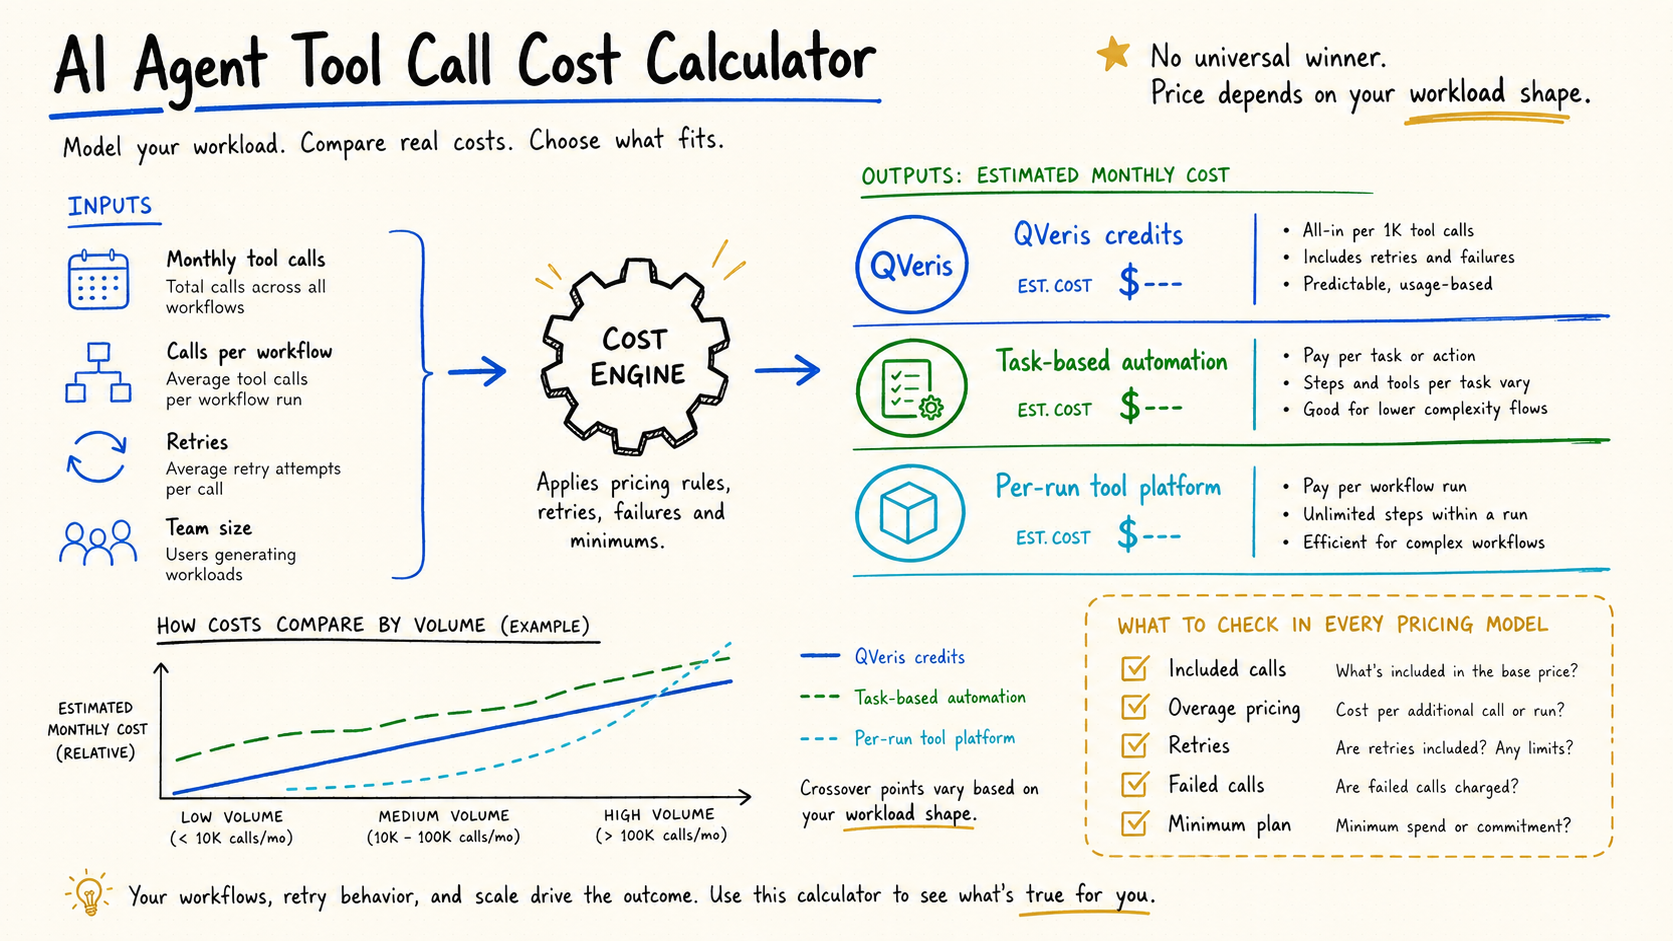 AI Agent Tool Call Cost Calculator
Model your workload. Compare real costs. Choose what fits.
No universal winner.
Price depends on your workload shape.
INPUTS
Monthly tool calls
Total calls across all
workflows
Calls per workflow
Average tool calls
per workflow run
Retries
Average retry attempts
per call
Team size
Users generating
workloads
COST
ENGINE
Applies pricing rules,
retries, failures and
minimums.
OUTPUTS: ESTIMATED MONTHLY COST
QVeris
QVeris credits
EST. COST $---
• All-in per 1K tool calls
• Includes retries and failures
• Predictable, usage-based
Task-based automation
EST. COST $---
• Pay per task or action
• Steps and tools per task vary
• Good for lower complexity flows
Per-run tool platform
EST. COST $---
• Pay per workflow run
• Unlimited steps within a run
• Efficient for complex workflows
HOW COSTS COMPARE BY VOLUME (EXAMPLE)
ESTIMATED
MONTHLY COST
(RELATIVE)
LOW VOLUME
(< 10K calls/mo)
MEDIUM VOLUME
(10K – 100K calls/mo)
HIGH VOLUME
(> 100K calls/mo)
QVeris credits
Task-based automation
Per-run tool platform
Crossover points vary based on
your workload shape.
WHAT TO CHECK IN EVERY PRICING MODEL
Included calls What's included in the base price?
Overage pricing Cost per additional call or run?
Retries Are retries included? Any limits?
Failed calls Are failed calls charged?
Minimum plan Minimum spend or commitment?
Your workflows, retry behavior, and scale drive the outcome. Use this calculator to see what's true for you.